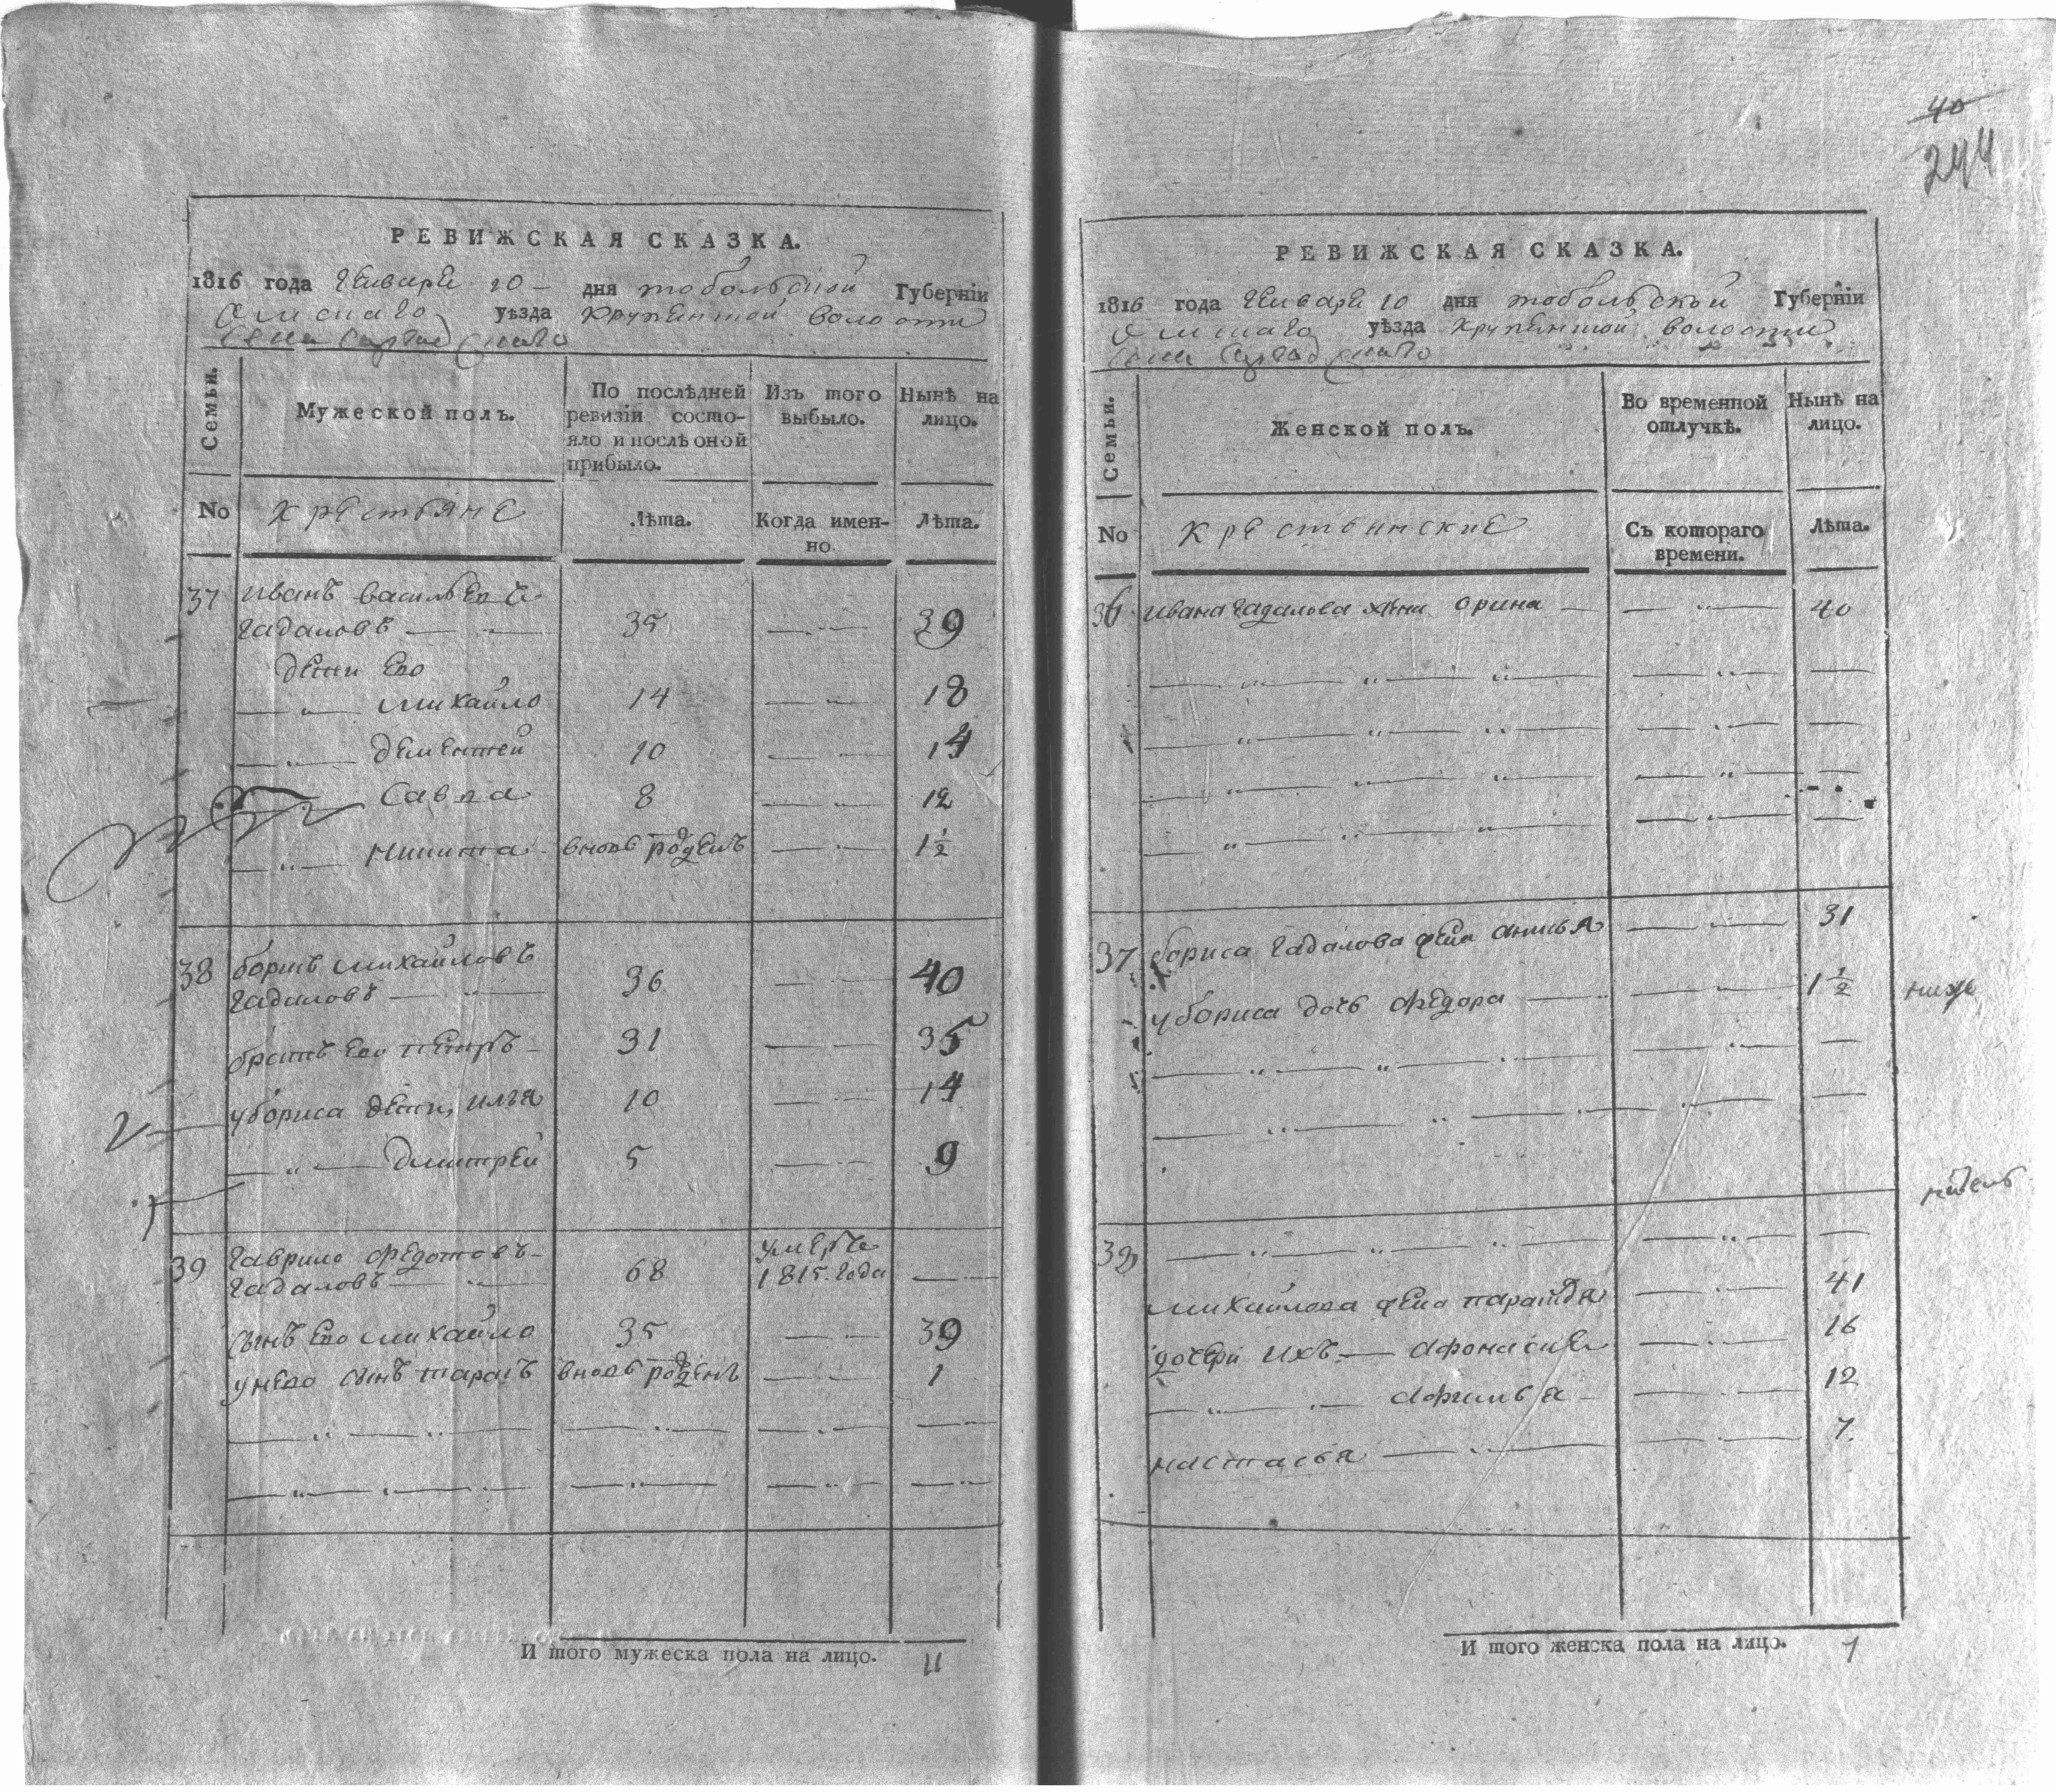 40
244
РЕВИЖСКАЯ СКАЗКА.
1816 года Генваря 10 — дня тобольской Губернїи
Омскаго уѣзда крупянской волости
Села
Семьи.
Мужеской полъ.
По послѣдней ревизїи состояло и послѣ оной прибыло.
Изъ того выбыло.
Нынѣ на лицо.
No
крестьяне
Лѣта.
Когда именно
Лѣта.
37 иванъ васильевъ
гадаловъ 35 39
дети ево
михайло 14 18
дементей 10 14
Савва 8 12
никита вновь рожденъ 1 1/2
38 борисъ михайловъ
гадаловъ 36 40
братъ ево петръ 31 35
у бориса дети, илья 10 14
дмитрей 5 9
39 гаврило федотовъ
гадаловъ 68 умеръ 1815. года
сынъ ево михайло 35 39
у нево сынъ тарасъ вновь рожденъ 1
И того мужеска пола на лицо. 11
РЕВИЖСКАЯ СКАЗКА.
1816 года Генваря 10 дня тобольской Губернїи
Омскаго уѣзда крупянской волости
Села
Семьи.
Женской полъ.
Во временной отлучкѣ.
Нынѣ на лицо.
No
крестьянские
Съ котораго времени.
Лѣта.
36 ивана гадалова жена орина 40
37 бориса гадалова жена анисья 31
у бориса дочь федора 1 1/2
39
михайлова жена парасковья 41
дочери ихъ — афонасия 16
афимья 12
настасья 7
И того женска пола на лицо. 7